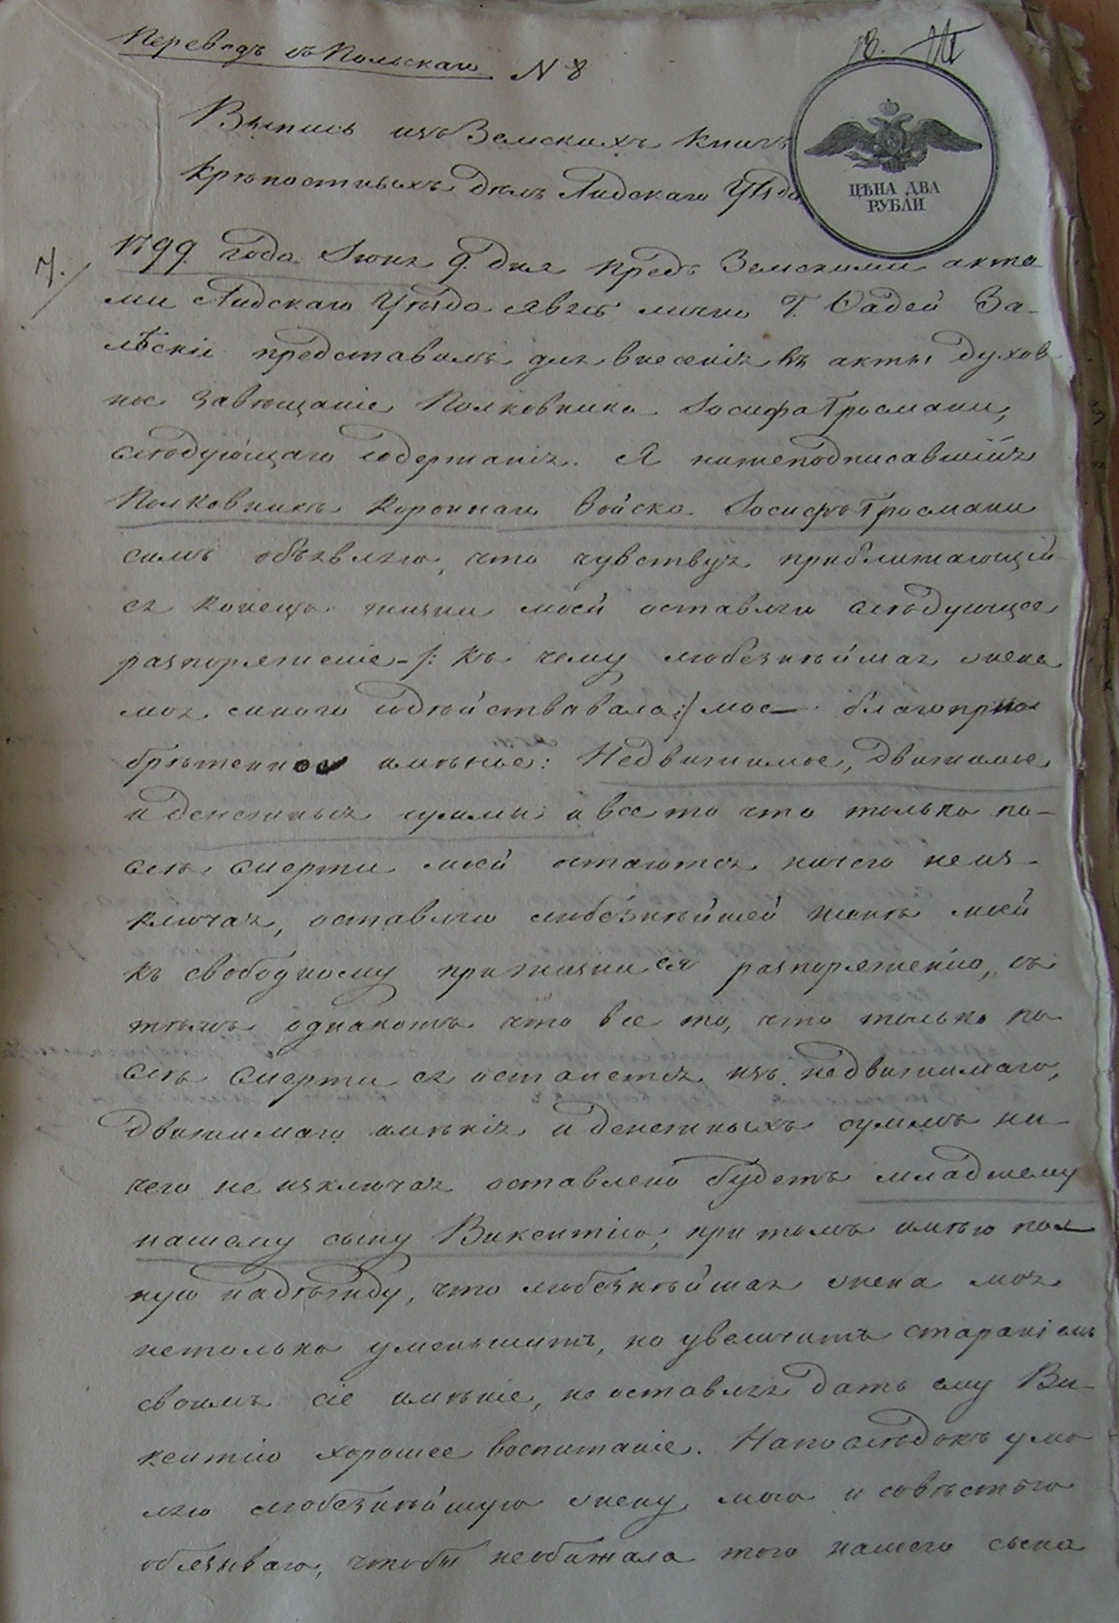 Переводъ съ Польскаго N 8
13.
ЦѢНА ДВА
РУБЛИ
Выпись изъ Земскихъ Книгъ
Крѣпостныхъ Дѣлъ Лидскаго Уѣзда
7.
1799 года Іюня 9 дня предъ Земскими акта
ми Лидскаго Уѣзда явясь лично Г. Фадей За-
лѣскій представилъ для внесенія въ акты духов
ное завѣщаніе Полковника Іосифа Гросмани,
слѣдующаго содержанія. Я нижеподписавшійся
Полковникъ Короннаго Войска Іосифъ Гросмани
симъ объявляю, что чувствуя приближающій
ся конецъ жизни моей оставляю слѣдующее
разпоряженіе -/: къ чему любезнѣйшая жена
моя много содѣйствовала :/ мое благопріо
брѣтенное имѣніе: Недвижимое, движимое
и денежныя суммы и все то что только по-
слѣ смерти моей останется ничего не из-
ключая, оставляю любезнѣйшей женѣ моей
къ свободному при жизни ея разпоряженію, съ
тѣмъ однакожъ что все то, что только по
слѣ смерти ея останется изъ недвижимаго,
движимаго имѣнія и денежныхъ суммъ ни-
чего не изключая оставлено будетъ младшему
нашему сыну Викентію, при томъ имѣю пол
ную надѣжду, что любезнѣйшая жена моя
нетолько уменьшитъ, но увеличитъ стараніемъ
своимъ сіе имѣніе, не оставляя дать ему Ви-
кентію хорошее воспитаніе. Напослѣдокъ умо
ляю любезнѣйшую жену мою и совѣстью
обязываю, чтобы необижала того нашего сына